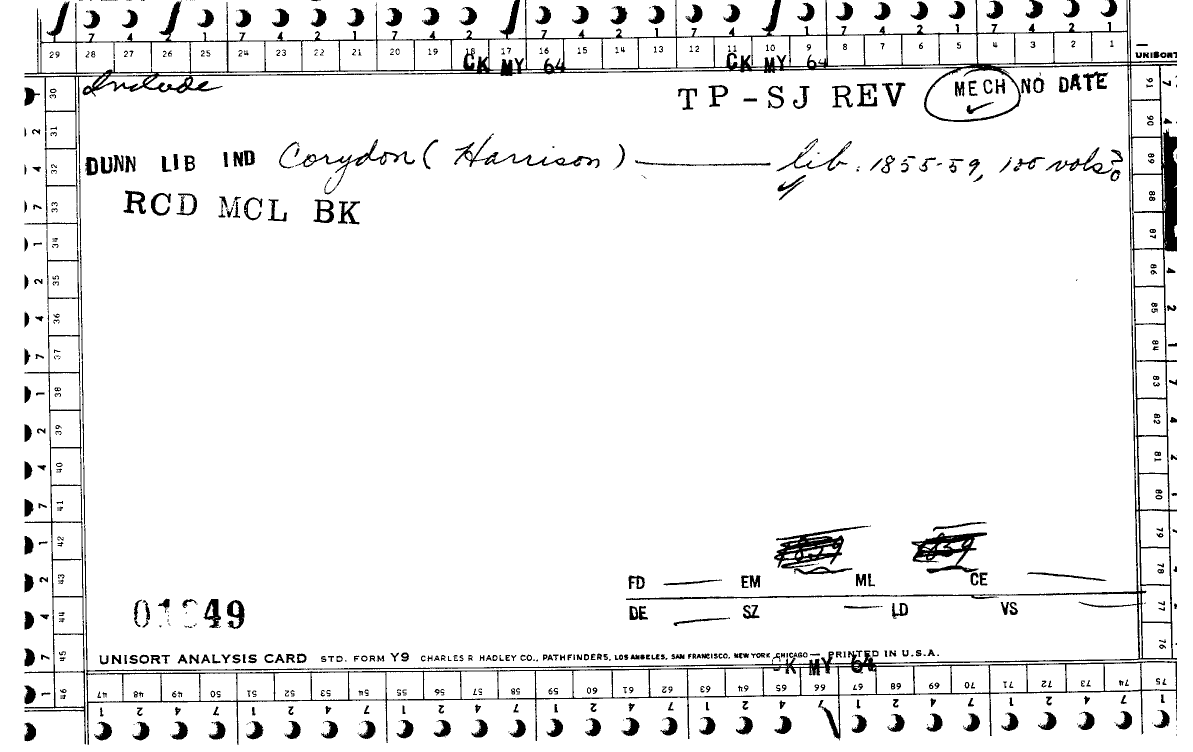 7 4 2 1 7 4 2 1 7 4 2 1 7 4 2 1 7 4 2 1 7 4 2 1 7 4 2 1
29 28 27 26 25 24 23 22 21 20 19 18 17 16 15 14 13 12 11 10 9 8 7 6 5 4 3 2 1
UNISORT
CK MY 64 CK MY 64
Include
TP-SJ REV MECH NO DATE
DUNN LIB IND Corydon (Harrison) lib. 1855-59, 100 vols?
RCD MCL BK
1 30
2 31
4 32
7 33
1 34
2 35
4 36
7 37
1 38
2 39
4 40
7 41
1 42
2 43
4 44
7 45
1 46
91
90
89
88
87
86
85
84
83
82
81
80
79
78
77
76
75
FD EM ML CE
DE SZ LD VS
01849
UNISORT ANALYSIS CARD STD. FORM Y9 CHARLES R HADLEY CO., PATHFINDERS, LOS ANGELES, SAN FRANCISCO, NEW YORK, CHICAGO — PRINTED IN U.S.A.
CK MY 64
47 48 49 50 51 52 53 54 55 56 57 58 59 60 61 62 63 64 65 66 67 68 69 70 71 72 73 74
1 2 4 7 1 2 4 7 1 2 4 7 1 2 4 7 1 2 4 7 1 2 4 7 1 2 4 7 1